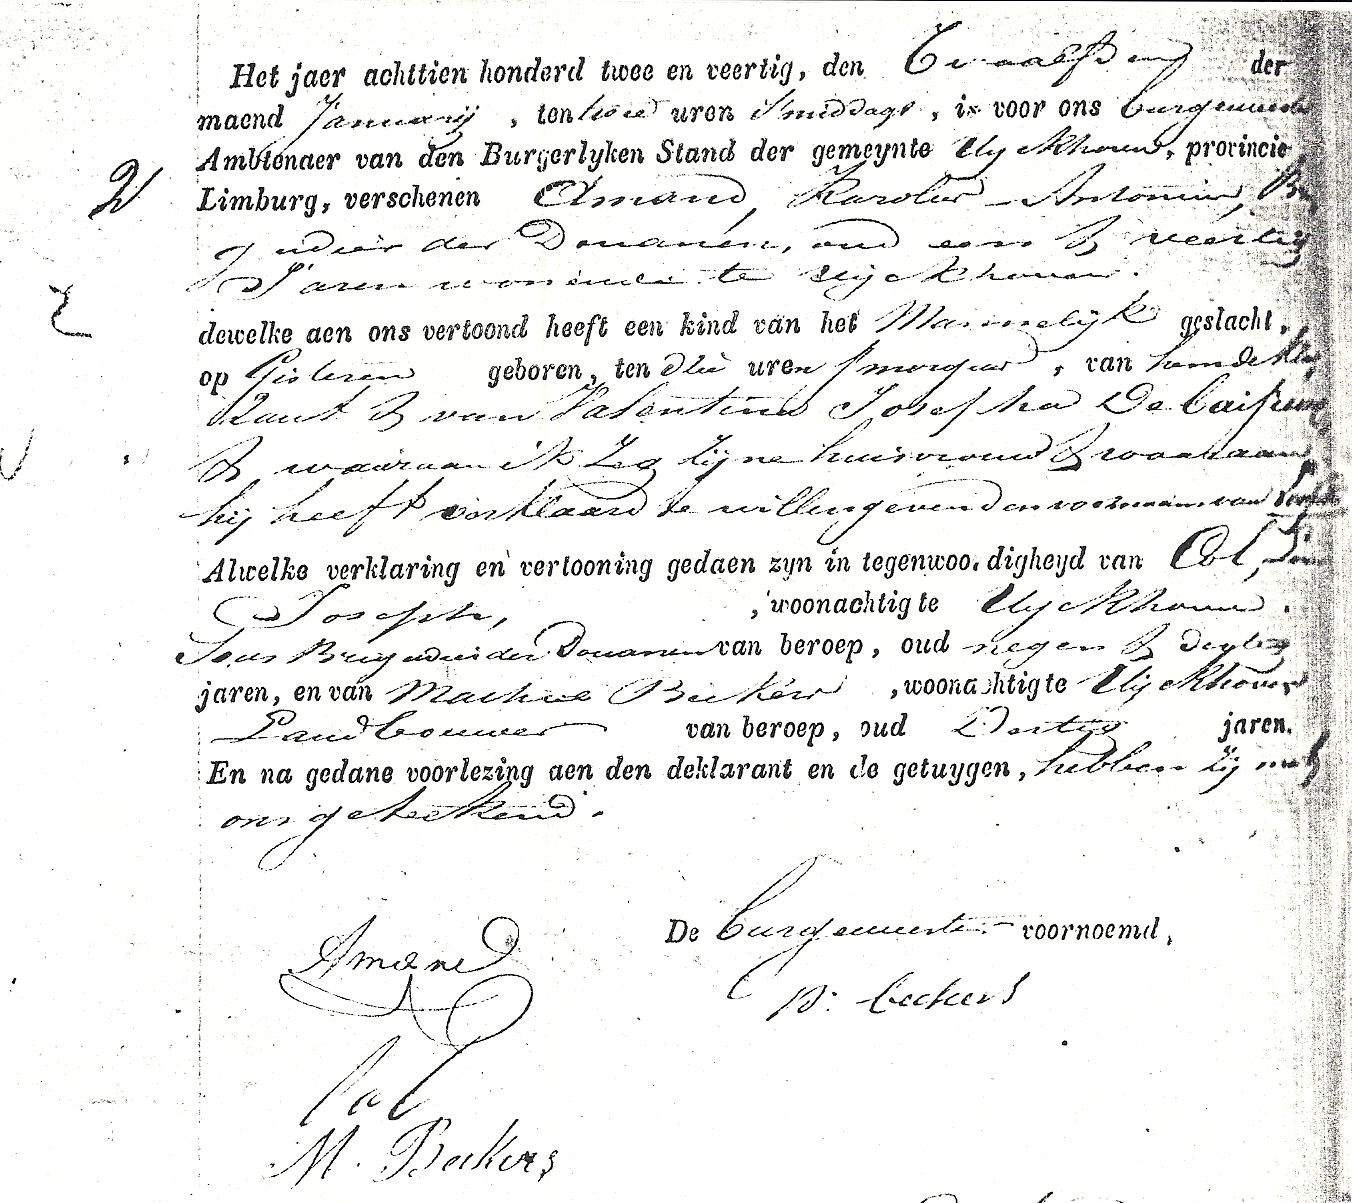 Het jaer achttien honderd twee en veertig, den Twaalfden der
maend Januarij, ten twee uren s'middags, is voor ons burgemeester
Ambtenaer van den Burgerlyken Stand der gemeynte Uyckhoven, provincie
2 Limburg, verschenen Amand, Karolus Antonius, Bri
gadier der Douanen, oud een & veertig
Jaren wonende te Uyckhoven.
dewelke aen ons vertoond heeft een kind van het Mannelyk geslacht,
op Gisteren geboren, ten drie uren s'morgens, van hem dekla
rant & van Valentina Josepha De
& waarvan ik zeg zijne huisvrouw & waaraan
hij heeft verklaard te willen geven den voornaam van
Alwelke verklaring en vertooning gedaen zyn in tegenwoo.digheyd van Col,
Joseph, , woonachtig te Uyckhoven.
Sous Brigadier der Douanen van beroep, oud negen & dertig
jaren, en van Machiel Beckers, woonachtig te Uyckhoven
Landbouwer van beroep, oud Dertig jaren.
En na gedane voorlezing aen den deklarant en de getuygen, hebben zij met
ons geteekend.
De burgemeester voornoemd,
Amand
P. Beckers
Col
M. Beckers